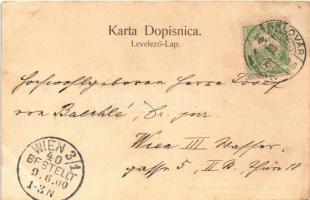 Karta Dopisnica.
Levelező-Lap.
Hochwohlgeboren Herrn Josef
von Baechlé, Dr. jur.
Wien III Wasser-
gasse 5, II. Thür 10
WIEN 3/1
40
BESTELLT
9.6.00
1-3N